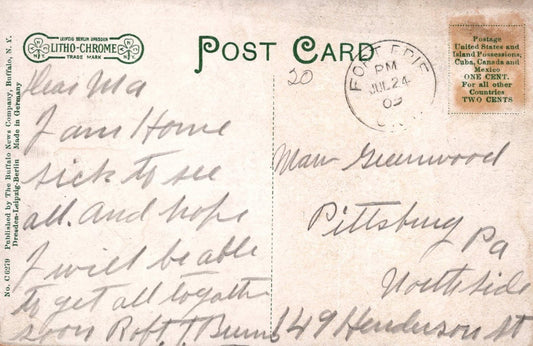 LEIPZIG BERLIN DRESDEN
LITHO-CHROME
TRADE MARK
POST CARD
Postage
United States and
Island Possessions,
Cuba, Canada and
Mexico
ONE CENT.
For all other
Countries
TWO CENTS
20
FORT ERIE
PM
JUL 24
09
No. C6279 Published by The Buffalo News Company, Buffalo, N. Y.
Dresden-Leipzig-Berlin Made in Germany
Dear Ma
I am Home
sick to see
all. And hope
I will be able
to get all togather
soon Robt. J. Burns
Greenwood
Pittsburg
Pa
Northside
149 Henderson St